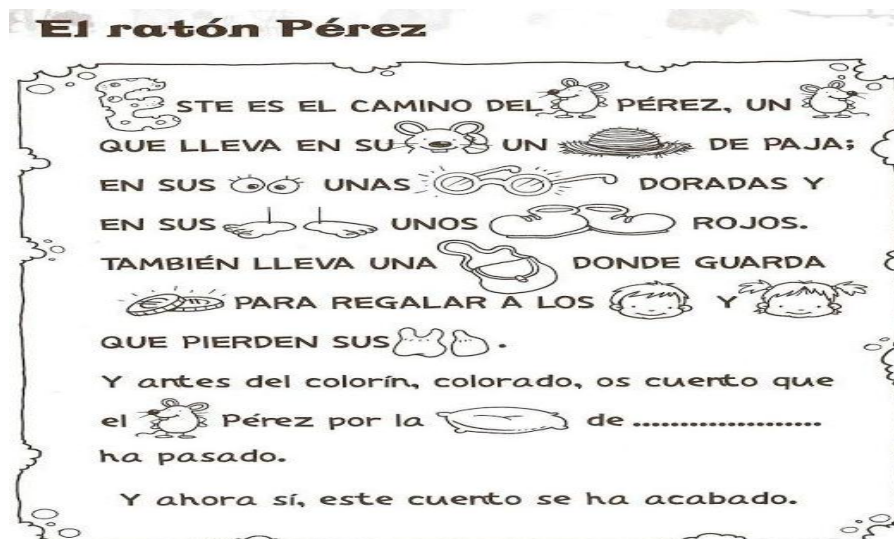 El ratón Pérez
ESTE ES EL CAMINO DEL PÉREZ, UN
QUE LLEVA EN SU UN DE PAJA;
EN SUS UNAS DORADAS Y
EN SUS UNOS ROJOS.
TAMBIÉN LLEVA UNA DONDE GUARDA
PARA REGALAR A LOS Y
QUE PIERDEN SUS .
Y antes del colorín, colorado, os cuento que
el Pérez por la de ....................
ha pasado.
Y ahora sí, este cuento se ha acabado.